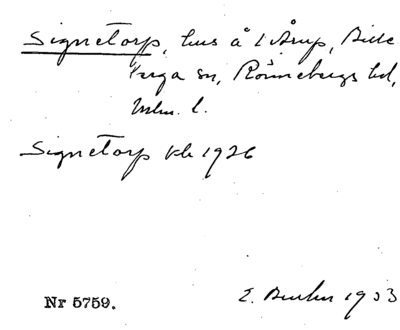 Signetorp, hus å 1 Årup, Bille
berga sn, Rönnebergs hd,
Mlm. l.
Signetorp Kb 1926
Nr 5759.
E. 1933